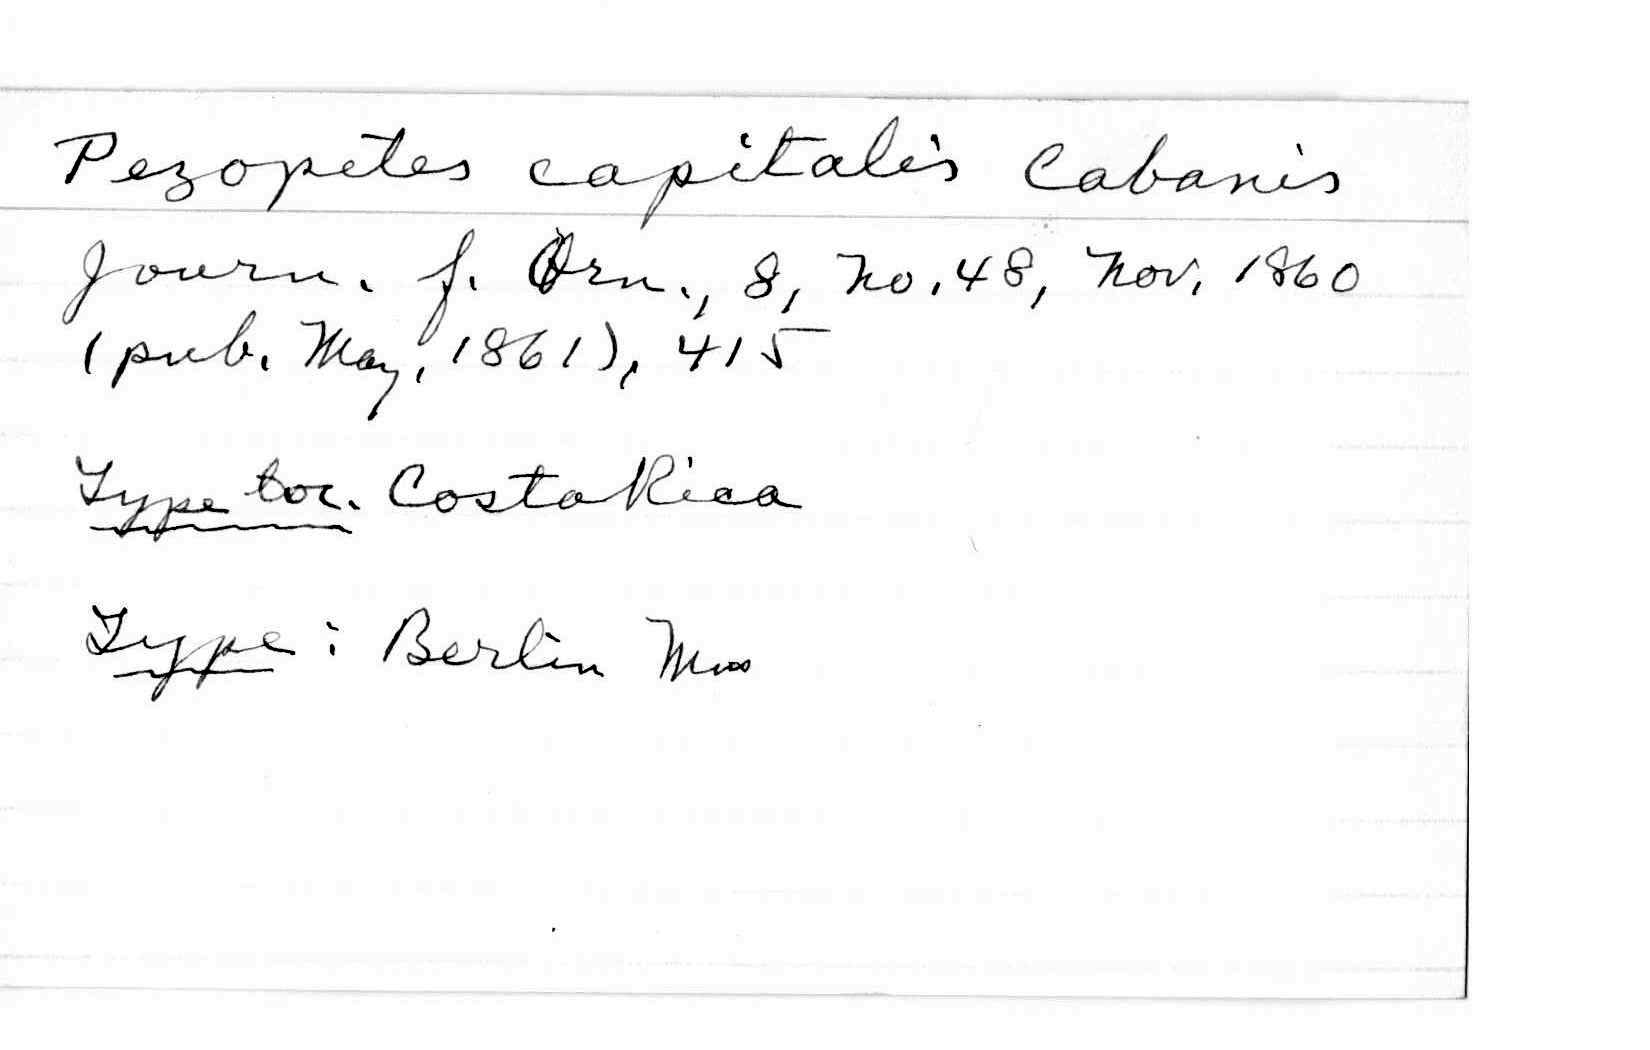 Pezopetes capitalis Cabanis
Journ. f. Orn., 8, no. 48, Nov, 1860
(pub. May, 1861), 415
Type loc. Costa Rica
Type: Berlin Mus